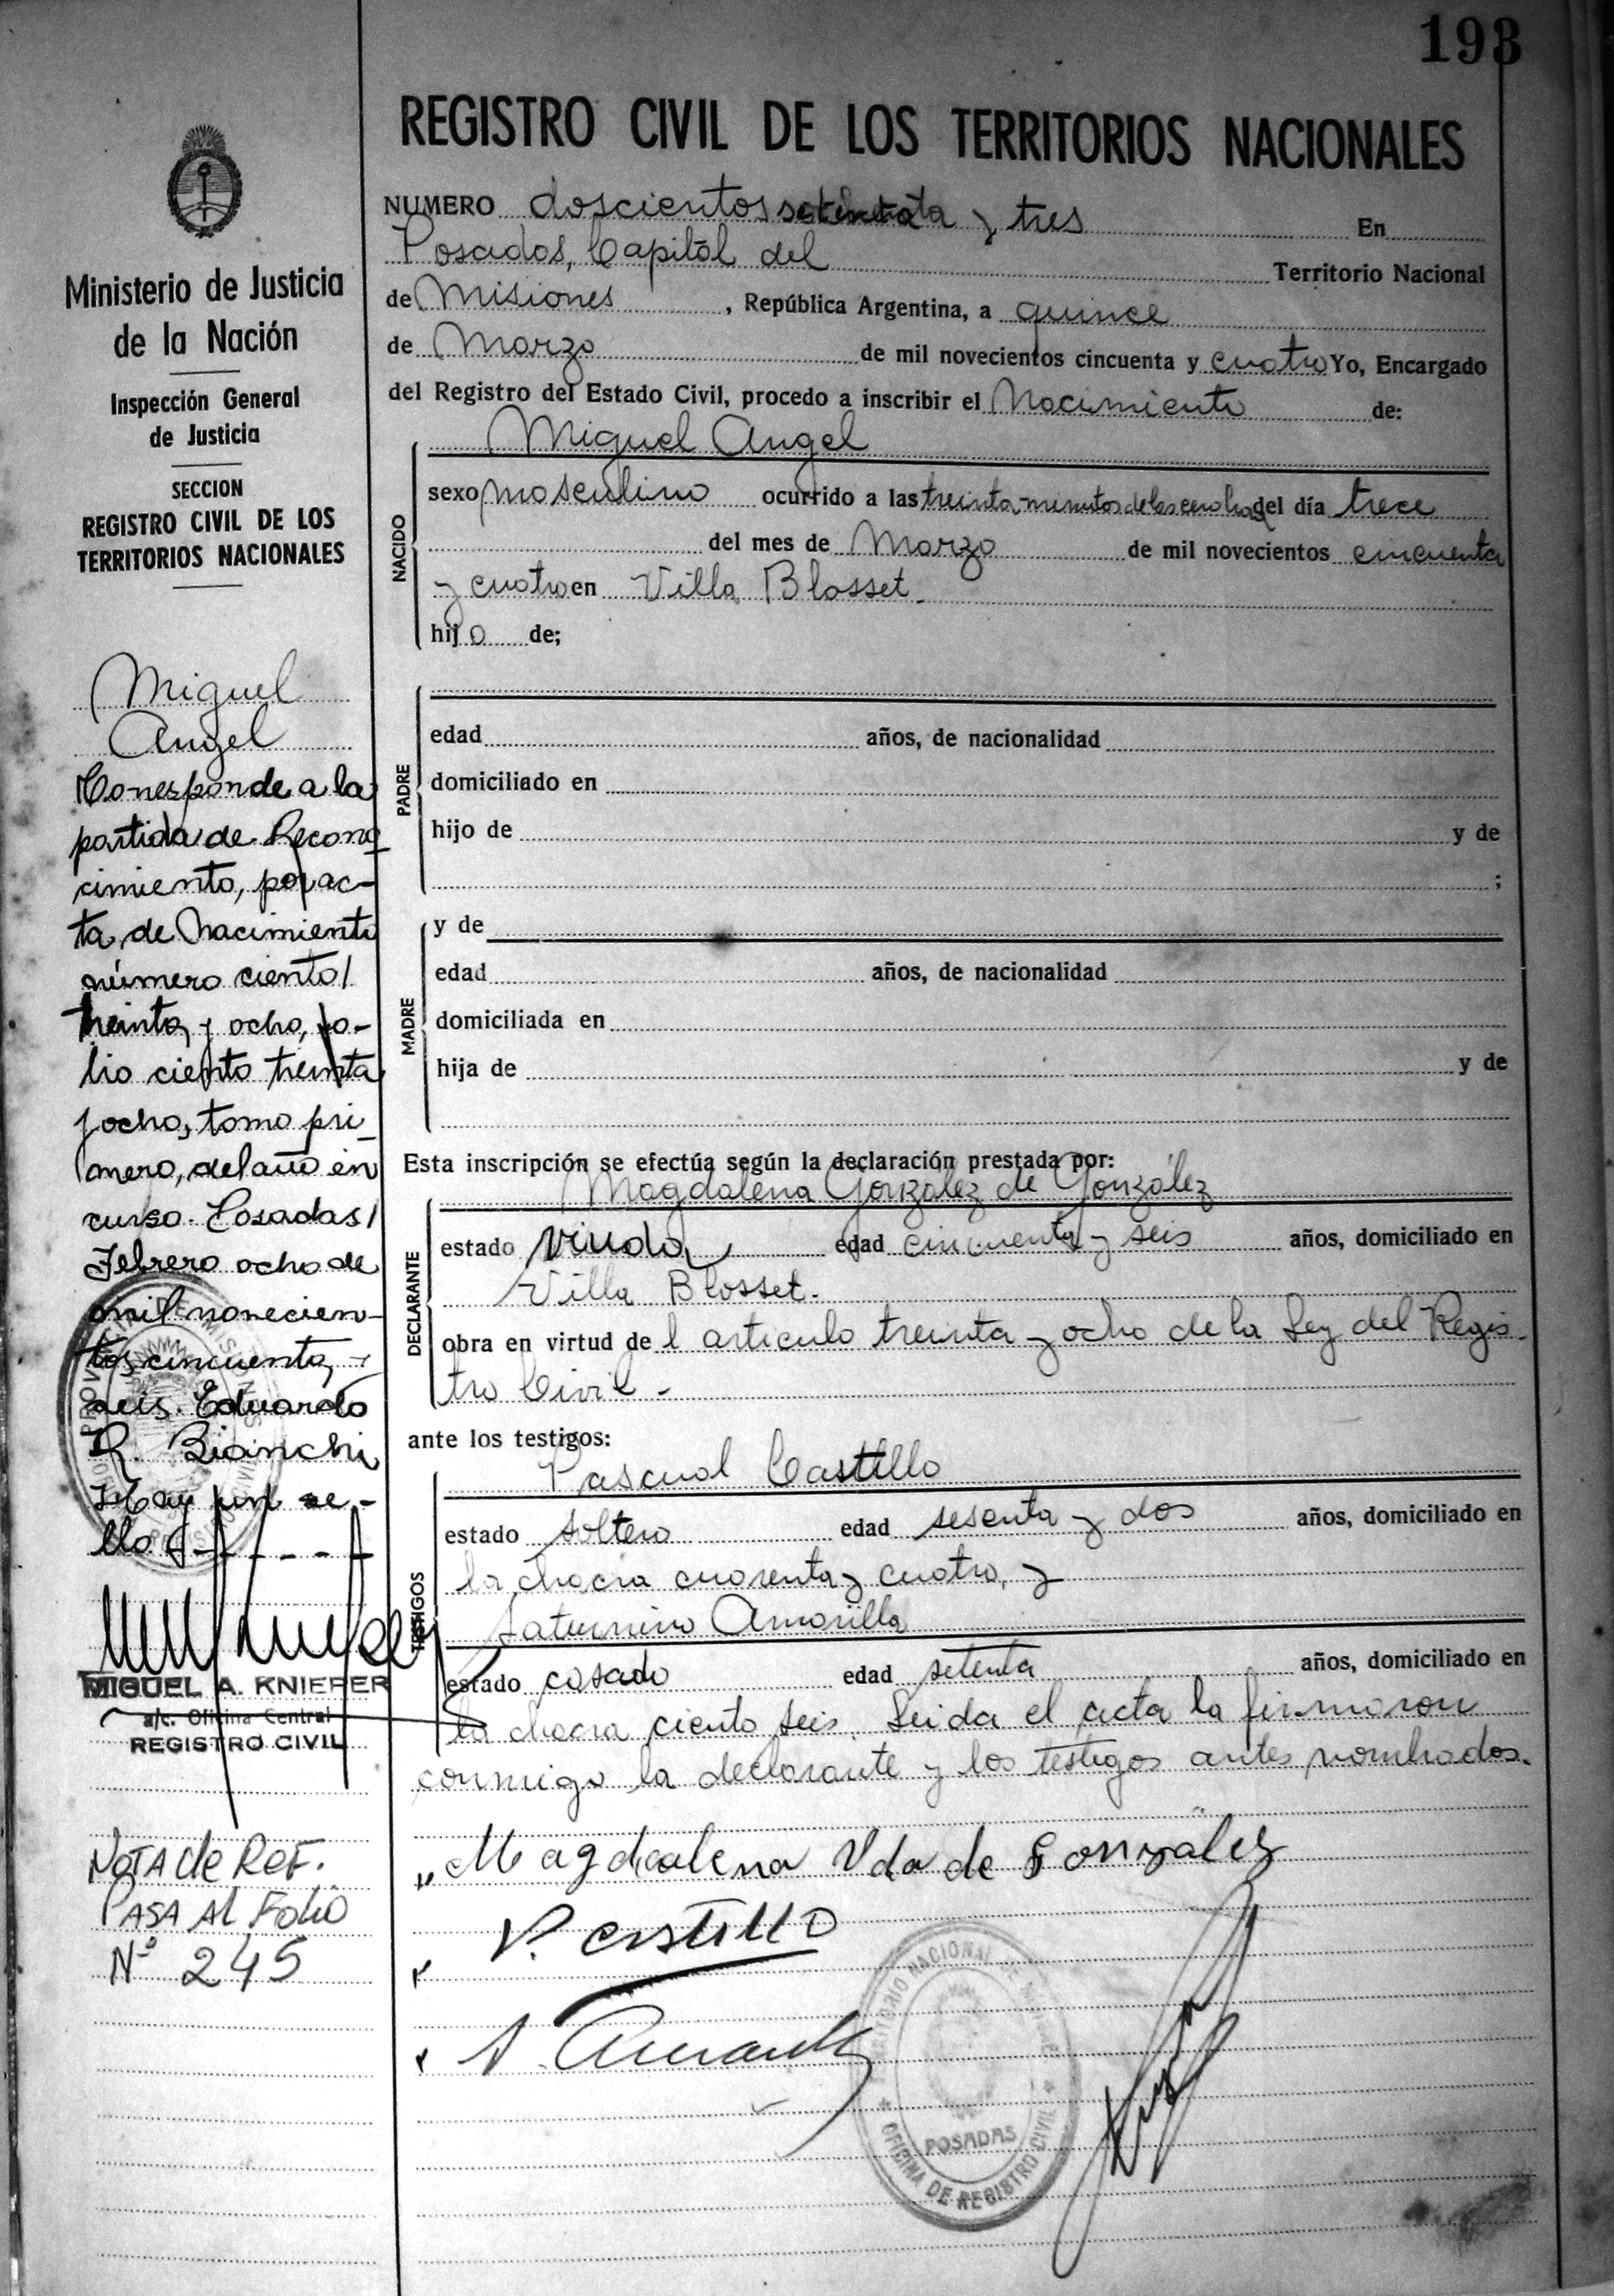 198
REGISTRO CIVIL DE LOS TERRITORIOS NACIONALES
NUMERO doscientos y tres En
Posadas, Capital del Territorio Nacional
de Misiones, República Argentina, a quince
de Marzo de mil novecientos cincuenta y cuatro Yo, Encargado
del Registro del Estado Civil, procedo a inscribir el Nacimiento de:
NACIDO
Miguel Angel
sexo masculino ocurrido a las treinta minutos de las cero horas del día trece
del mes de Marzo de mil novecientos cincuenta
y cuatro en Villa Blosset.
hijo de;
PADRE
edad años, de nacionalidad
domiciliado en
hijo de y de
;
MADRE
y de
edad años, de nacionalidad
domiciliada en
hija de y de
Esta inscripción se efectúa según la declaración prestada por:
DECLARANTE
Magdalena González de González
estado viuda, edad cincuenta y seis años, domiciliado en
Villa Blosset.
obra en virtud del articulo treinta y ocho de la Ley del Regis-
tro Civil.-
ante los testigos:
TESTIGOS
Pascual Castillo
estado soltero edad sesenta y dos años, domiciliado en
la chacra cuarenta y cuatro, y
Saturnino Amarilla
estado casado edad setenta años, domiciliado en
la chacra ciento seis. Leida el acta la firmaron
conmigo la declarante y los testigos antes nombrados.
Magdalena Vda de Gonzalez
P. CASTILLO
TERRITORIO NACIONAL DE MISIONES
POSADAS
OFICINA DE REGISTRO CIVIL
Ministerio de Justicia
de la Nación
Inspección General
de Justicia
SECCION
REGISTRO CIVIL DE LOS
TERRITORIOS NACIONALES
Miguel
Angel
Corresponde a la
partida de Recono-
cimiento, por ac-
ta de Nacimiento
número ciento
treinta y ocho, fo-
lio ciento treinta
y ocho, tomo pri-
mero, del año en
curso. Posadas
Febrero ocho de
mil novecien-
tos cincuenta y
seis. Eduardo
R. Bianchi
Hay un se-
llo
MIGUEL A. KNIEFER
a/c. Oficina Central
REGISTRO CIVIL
NOTA de REF.
PASA Al Folio
Nº 245